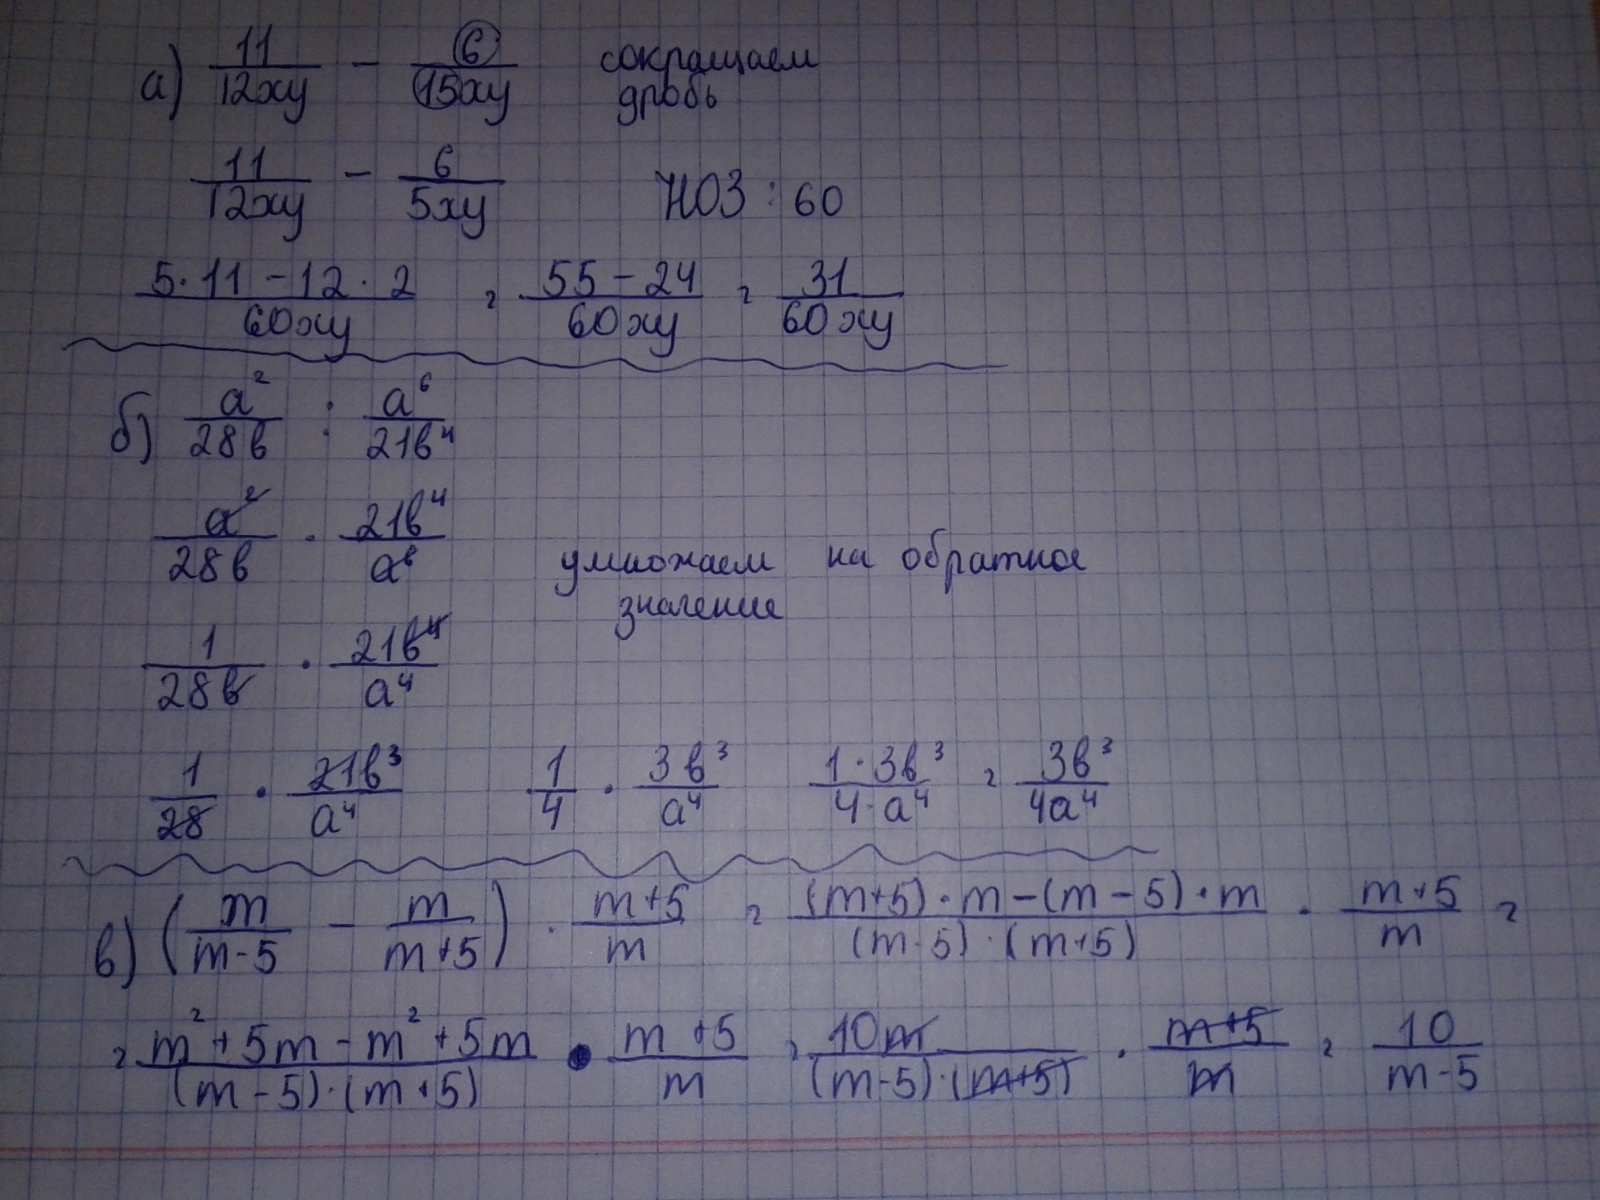 а) 11/12xy - 6/15xy сокращаем
дробь
11/12xy - 6/5xy НОЗ : 60
5·11-12·2/60xy = 55-24/60xy = 31/60xy
б) a²/28b : a⁶/21b⁴
a²/28b · 21b⁴/a⁶ умножаем на обратное
значение
1/28b · 21b⁴/a⁴
1/28 · 21b³/a⁴ 1/4 · 3b³/a⁴ 1·3b³/4·a⁴ = 3b³/4a⁴
в) (m/m-5 - m/m+5) · m+5/m = (m+5)·m-(m-5)·m/(m-5)·(m+5) · m+5/m =
= m²+5m-m²+5m/(m-5)·(m+5) · m+5/m = 10m/(m-5)·(m+5) · m+5/m = 10/m-5